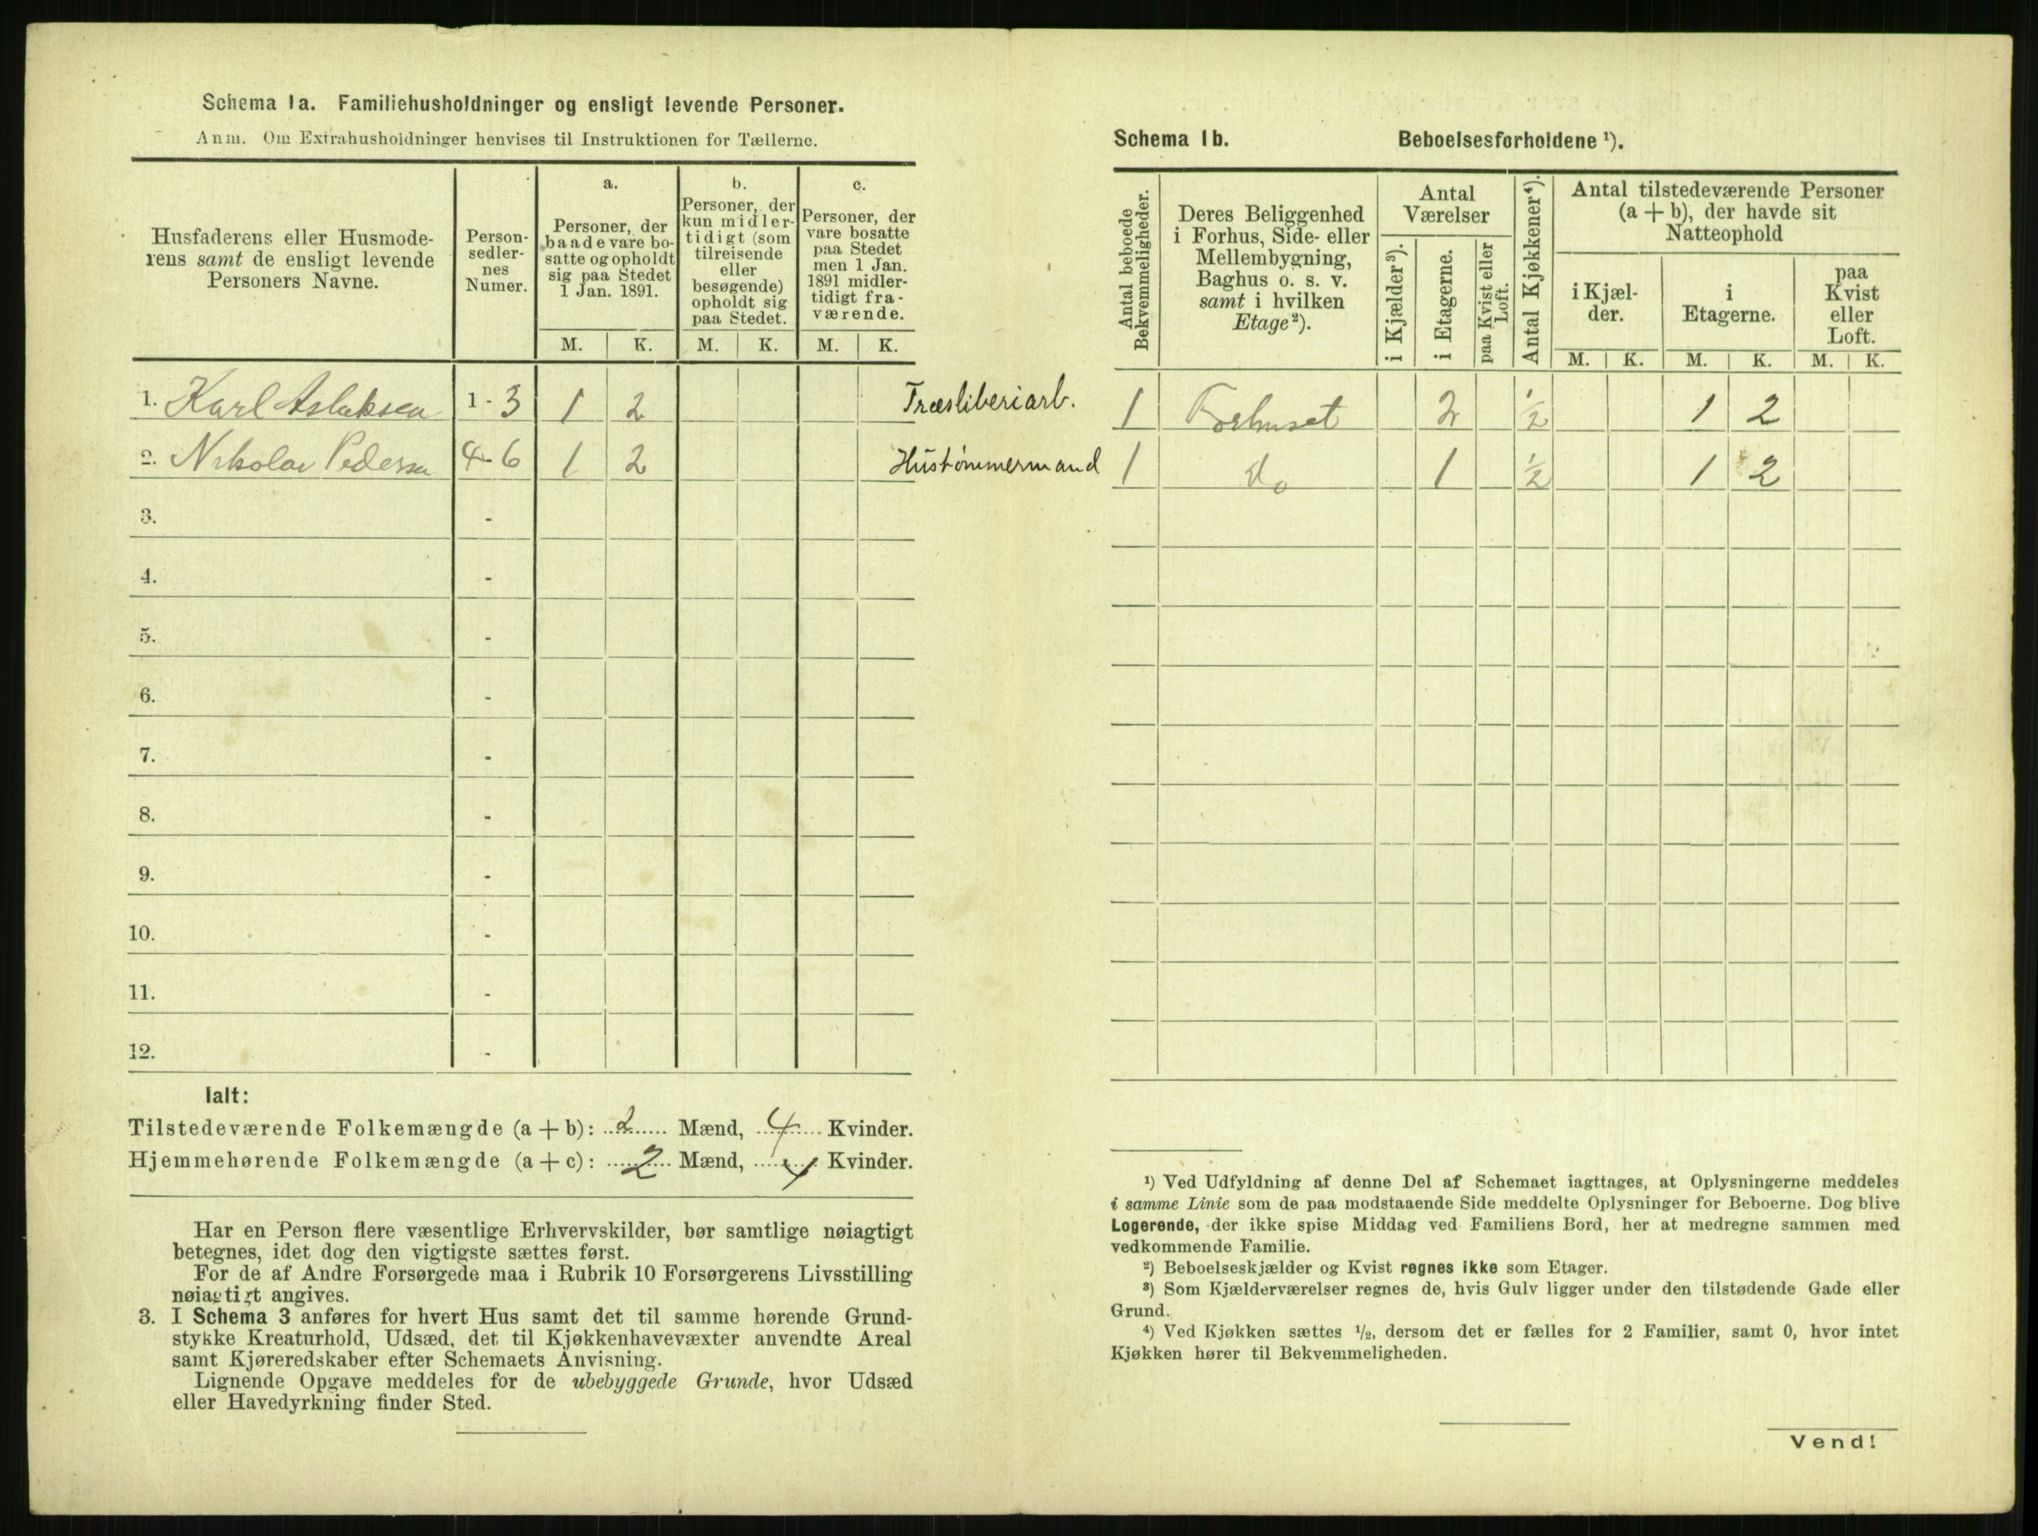 Schema 1a. Familiehusholdninger og ensligt levende Personer.
Anm. Om Extrahusholdninger henvises til Instruktionen for Tællerne.
Husfaderens eller Husmode-
rens samt de ensligt levende
Personers Navne.
Person-
sedler-
nes
Numer.
a.
Personer, der
baade vare bo-
satte og opholdt
sig paa Stedet
1 Jan. 1891.
b.
Personer, der
kun midler-
tidigt (som
tilreisende
eller
besøgende)
opholdt sig
paa Stedet.
c.
Personer, der
vare bosatte
paa Stedet
men 1 Jan.
1891 midler-
tidigt fra-
værende.
M. K. M. K. M. K.
1. Karl Aslaksen 1-3 1 2 Træsliberiarb.
2. Nikolai Pedersen 4-6 1 2 Hustømmermand
3. -
4. -
5. -
6. -
7. -
8. -
9. -
10. -
11. -
12. -
Ialt:
Tilstedeværende Folkemængde (a+b): 2 Mænd, 4 Kvinder.
Hjemmehørende Folkemængde (a+c): 2 Mænd, 4 Kvinder.
Har en Person flere væsentlige Erhvervskilder, bør samtlige nøiagtigt
betegnes, idet dog den vigtigste sættes først.
For de af Andre Forsørgede maa i Rubrik 10 Forsørgerens Livsstilling
nøiagtigt angives.
3. I Schema 3 anføres for hvert Hus samt det til samme hørende Grund-
stykke Kreaturhold, Udsæd, det til Kjøkkenhavevæxter anvendte Areal
samt Kjøreredskaber efter Schemaets Anvisning.
Lignende Opgave meddeles for de ubebyggede Grunde, hvor Udsæd
eller Havedyrkning finder Sted.
Schema 1b. Beboelsesforholdene ¹).
Antal beboede
Bekvemmeligheder.
Deres Beliggenhed
i Forhus, Side- eller
Mellembygning,
Baghus o. s. v.
samt i hvilken
Etage²).
Antal
Værelser
i Kjælder³).
i Etagerne.
paa Kvist eller
Loft.
Antal Kjøkkener⁴).
Antal tilstedeværende Personer
(a + b), der havde sit
Natteophold
i Kjæl-
der.
i
Etagerne.
paa
Kvist
eller
Loft.
M. K. M. K. M. K.
1 Forhuset 2 1/2 1 2
1 Do 1 1/2 1 2
¹) Ved Udfyldning af denne Del af Schemaet iagttages, at Oplysningerne meddeles
i samme Linie som de paa modstaaende Side meddelte Oplysninger for Beboerne. Dog blive
Logerende, der ikke spise Middag ved Familiens Bord, her at medregne sammen med
vedkommende Familie.
²) Beboelseskjælder og Kvist regnes ikke som Etager.
³) Som Kjælderværelser regnes de, hvis Gulv ligger under den tilstødende Gade eller
Grund.
⁴) Ved Kjøkken sættes ½, dersom det er fælles for 2 Familier, samt 0, hvor intet
Kjøkken hører til Bekvemmeligheden.
Vend!